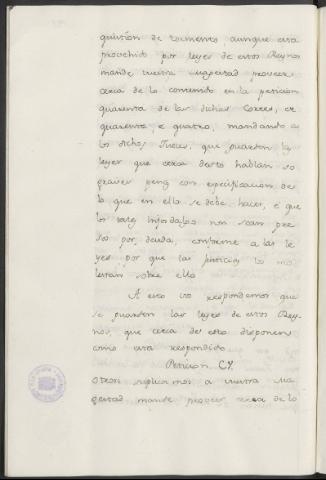 quistion de tormento aunque esta
provehido por leyes de estos Reynos
mande vuestra magestad proveer
cerca de lo contenido en la peticion
quarenta de las dichas Cortes, de
quarenta e quatro, mandando a
los dichos Jueces, que guarden las
leyes que cerca desto hablan so
graves penas con especificacion de
lo que en ello se debe hacer, e que
los tales hijosdalgo non sean pre
sos por deuda, conforme a las le
yes por que las justicias los mo
lestan sobre ello
A esto vos respondemos que
se guarden las leyes de estos Rey
nos, que cerca de esto disponen
como esta respondido
Peticion CV.
Otrosi suplicamos a vuestra Ma
gestad mande proveer cerca de lo